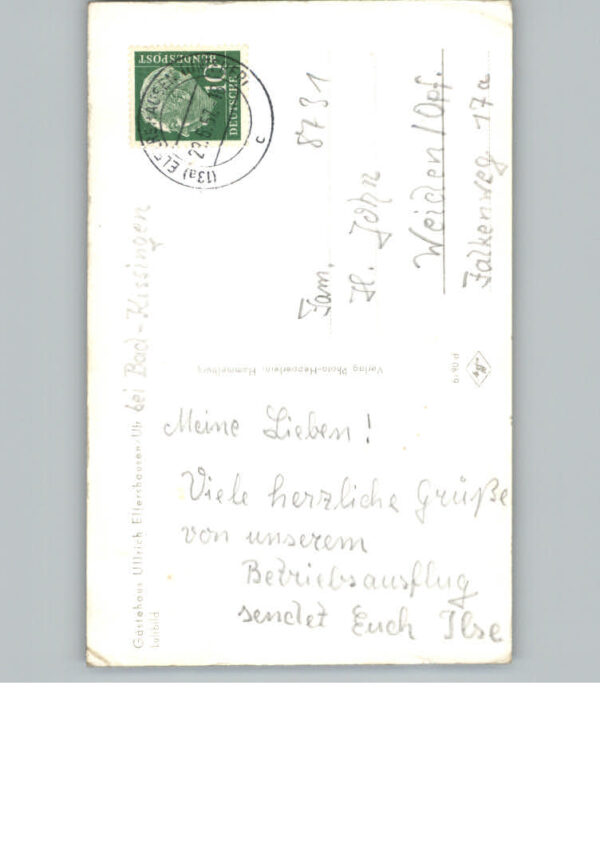 Gästehaus Ullrich Elfershausen/Ufr. bei Bad-Kissingen
Luftbild
Meine Lieben!
Viele herzliche Grüße
von unserem
Betriebsausflug
sendet Euch Ilse
Verlag Photo-Hepperlein, Hammelburg
DEUTSCHE
BUNDESPOST
10
(13a)
c
Fam.
8731
H. John
Weiden/Opf.
Falkenweg 17a